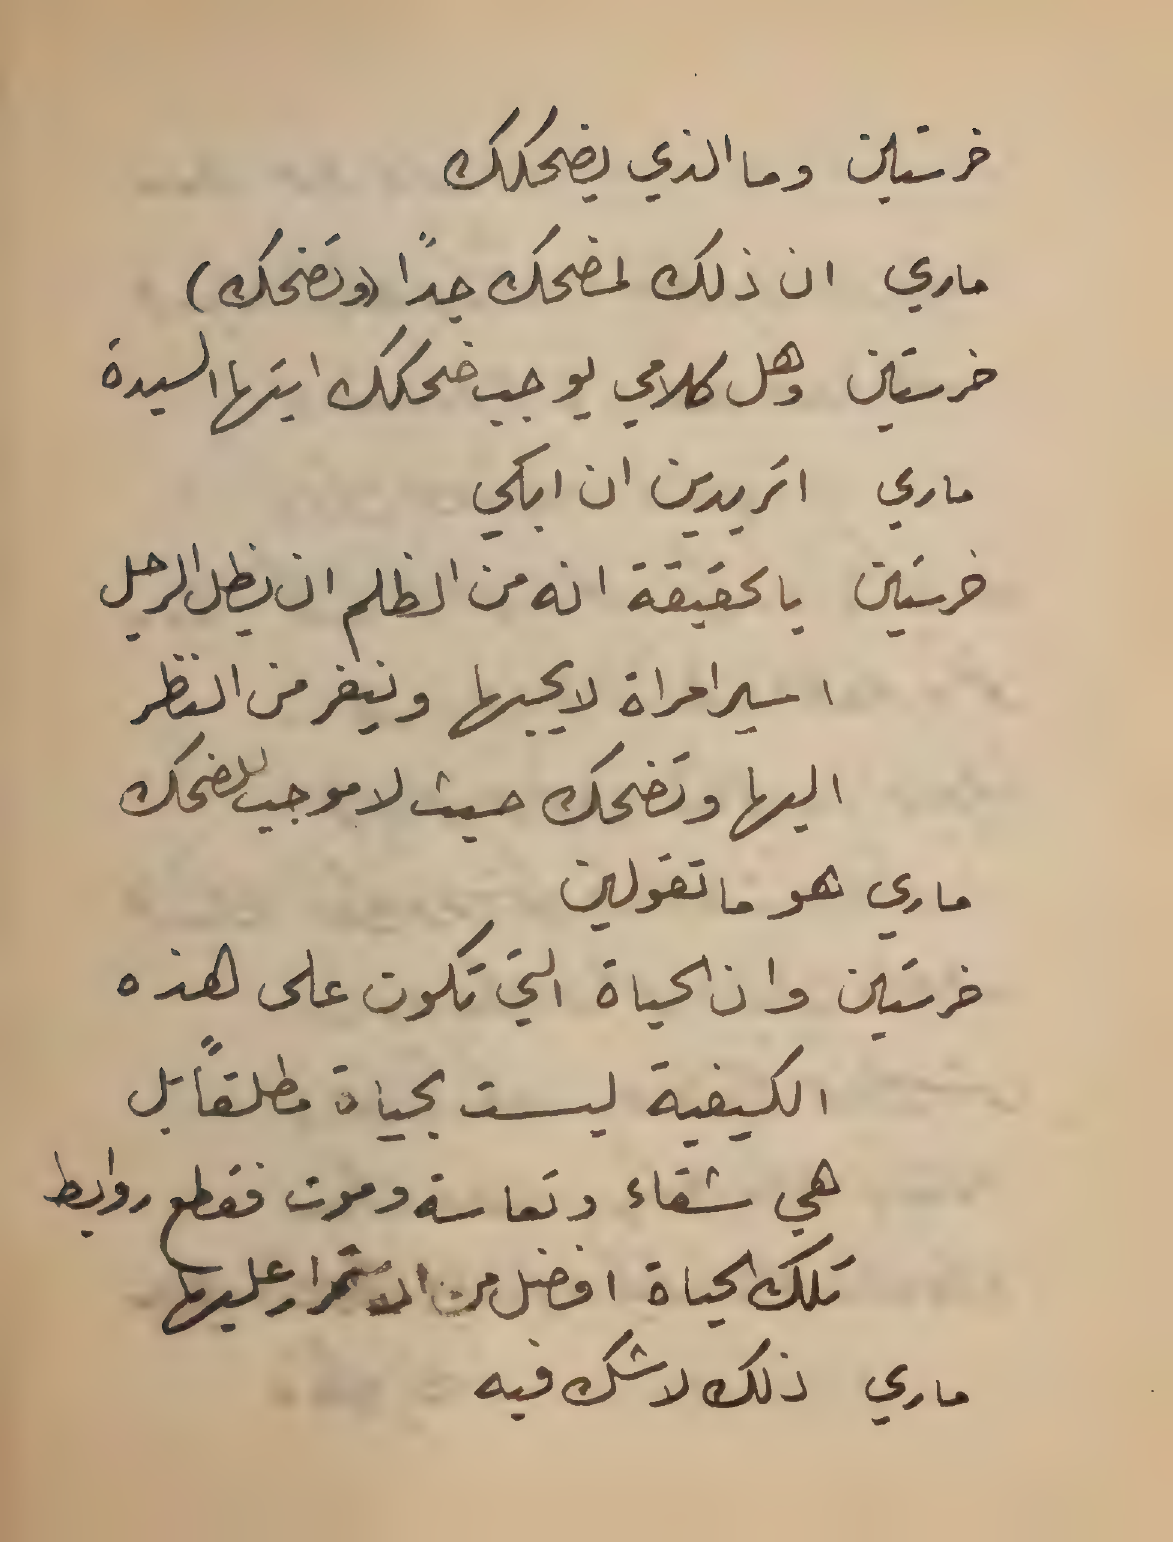 خرستين وما الذي يضحكك
ماري ان ذلك لمضحك جداً (وتضحك)
خرستين وهل كلامي يوجب ضحكك ايتها السيدة
ماري اتريدين ان ابكي
خرستين يالحقيقة انه من الظلم ان يظل الرجل
اسير امراة لا يحبها وينفر من النظر
اليها وتضحك حيث لا موجب للضحك
ماري هو ما تقولين
خرستين وان الحياة التي تكون على هذه
الكيفية ليست بحياة مطلقاً بل
هي شقاء وتعاسة وموت فقطع روابط
تلك الحياة افضل من الاستمرار عليها
ماري ذلك لا شك فيه